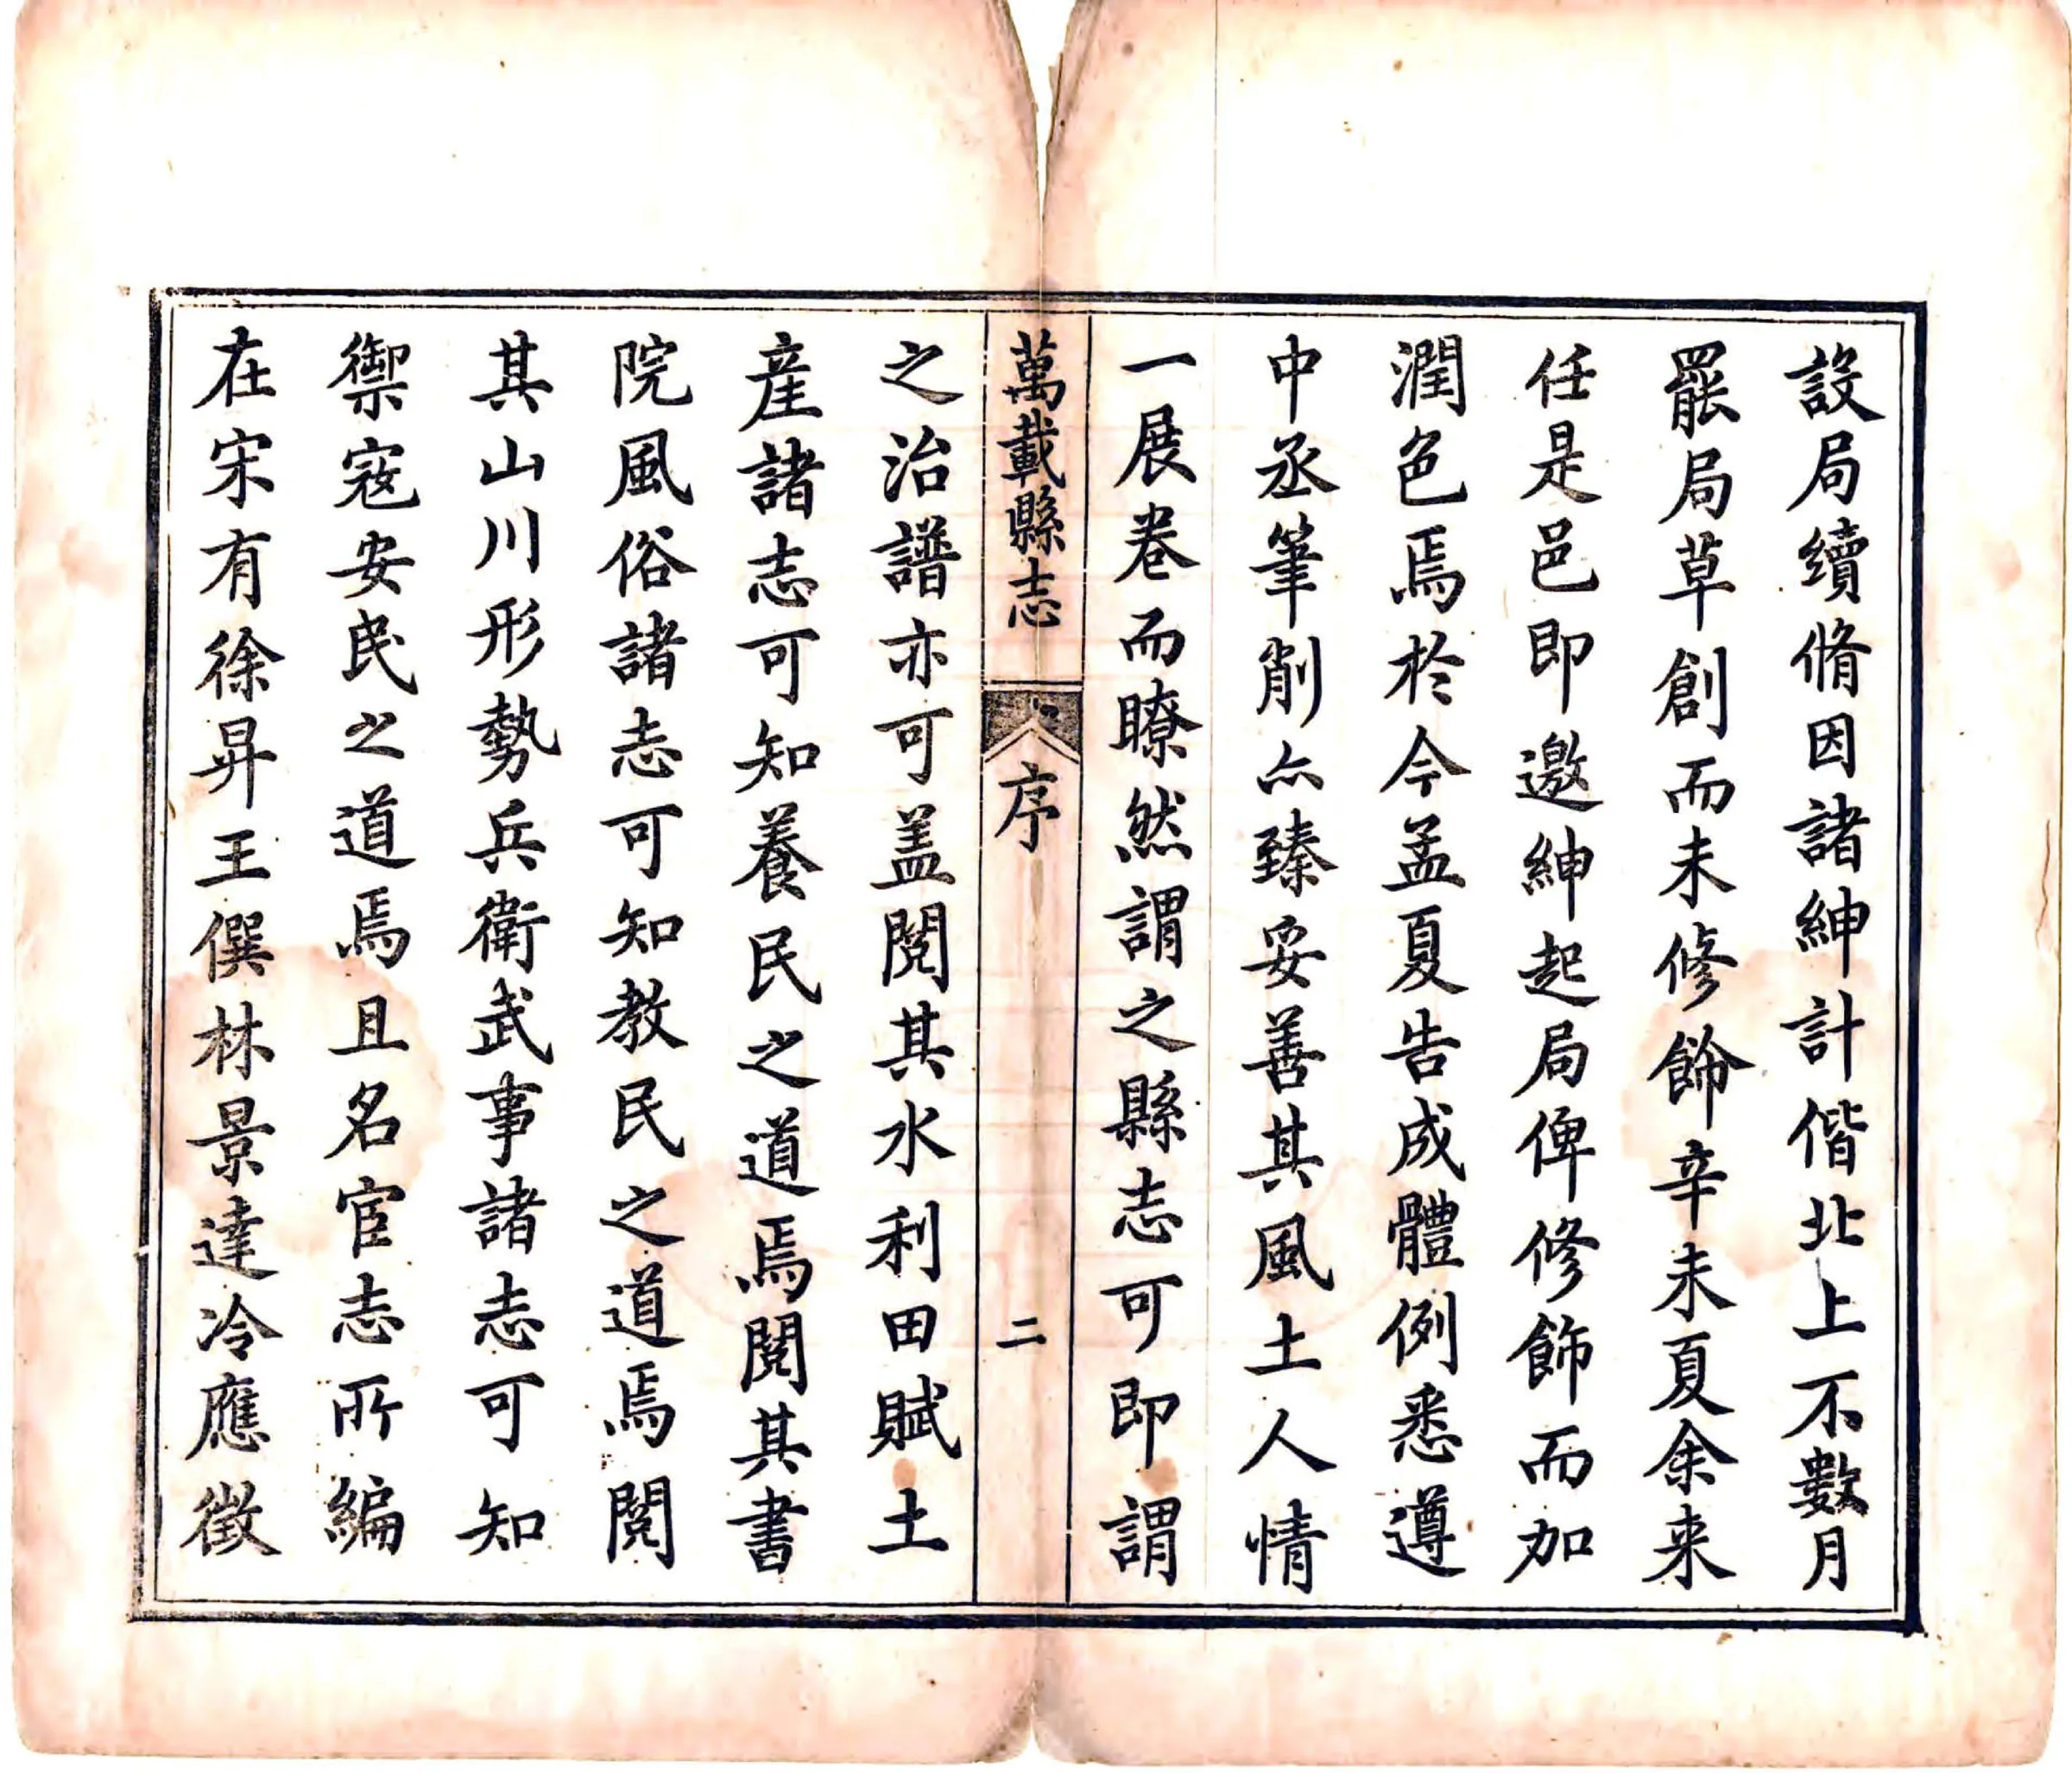 設局續脩因諸紳計偕北上不數月
罷局草創而未修飾辛未夏余来
任是邑即邀紳起局俾修飾而加
潤色焉於今孟夏告成體例悉遵
中丞筆削亦臻妥善其風土人情
一展卷而瞭然謂之縣志可即謂
萬載縣志
序
二
之治譜亦可盖閱其水利田賦土
産諸志可知養民之道焉閱其書
院風俗諸志可知教民之道焉閱
其山川形勢兵衛武事諸志可知
禦寇安民之道焉且名宦志所編
在宋有徐昇王僎林景達冷應徵